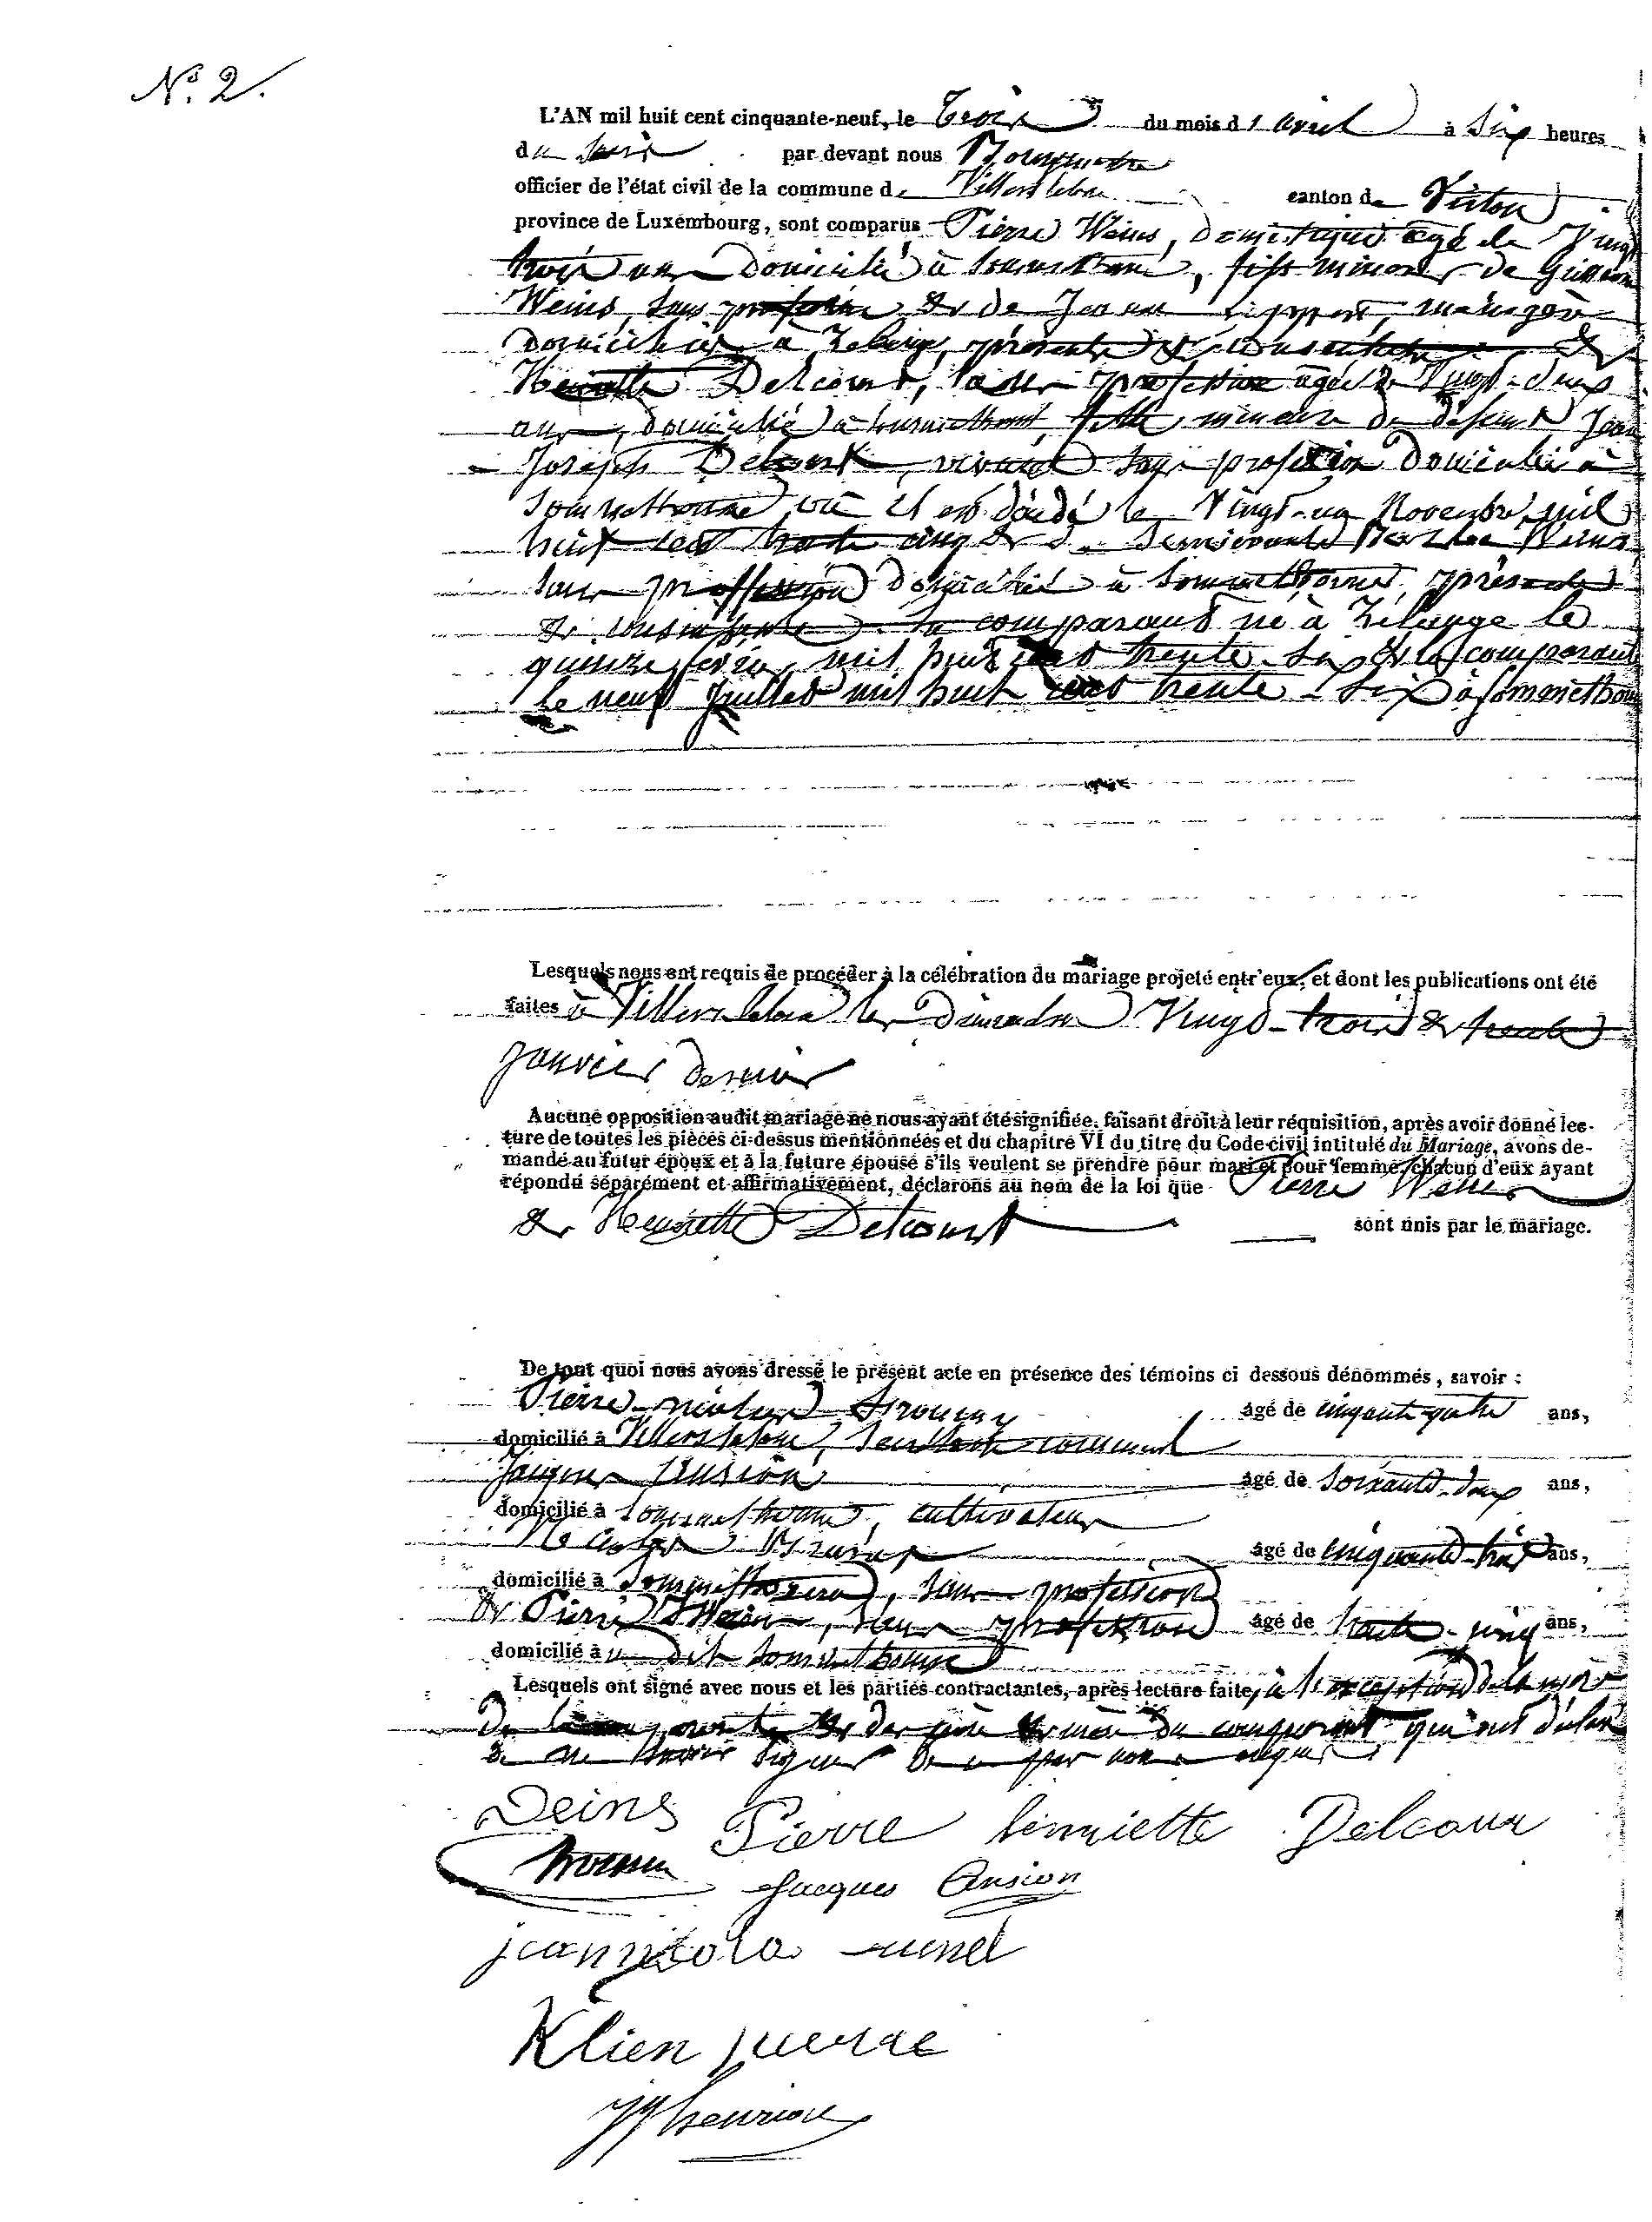 N° 2.
L'AN mil huit cent cinquante-neuf, le trois du mois d'avril à six heures
du soir par devant nous Bourgmestre
officier de l'état civil de la commune de Villers labone canton de Virton
province de Luxembourg, sont comparus Pierre Weins, Domestique agé de Vingt
trois ans Domicilié à, fils mineur de
Weins, sans profession & de Jeanne, ménagère
Domiciliés à, présents & consentants &
Henriette Delcourt, sans profession agée de Vingt-deux
ans, domiciliée à Sommethonne, fille mineure de défunt Jean
Joseph Delcourt, vivant sans profession Domicilié à
Sommethonne où il est décédé le Vingt-un Novembre mil
huit cent trente cinq & de
sans proffession domiciliée à Sommethonne, présente
& consentante. Le comparant né à Zélange le
quinze, mil huit cent trente-six & la comparante
le neuf Juillet mil huit cent trente-six à Sommethonne
Lesquels nous ont requis de procéder à la célébration du mariage projeté entr'eux, et dont les publications ont été
faites à Villers labone les Dimanches Vingt-trois & trente
Janvier dernier
Aucune opposition audit mariage ne nous ayant été signifiée, faisant droit à leur réquisition, après avoir donné lec-
ture de toutes les pièces ci-dessus mentionnées et du chapitre VI du titre du Code civil intitulé du Mariage, avons de-
mandé au futur époux et à la future épouse s'ils veulent se prendre pour mari et pour femme, chacun d'eux ayant
répondu séparément et affirmativement, déclarons au nom de la loi que Pierre Weins
& Henriette Delcourt sont unis par le mariage.
De tout quoi nous avons dressé le présent acte en présence des témoins ci dessous dénommés, savoir :
Pierre-nicolas âgé de cinquante-quatre ans,
domicilié à Villers labone, secrétaire communal
Jacques Ansion âgé de soixante-deux ans,
domicilié à Sommethonne, cultivateur
âgé de cinquante-trois ans,
domicilié à Sommethonne, sans profession
& Pierre, sans profession âgé de trente-cinq ans,
domicilié à u dit Sommethonne
Lesquels ont signé avec nous et les parties contractantes, après lecture faite, à l'exception de la mère
de la & des père & mère du comparant qui ont déclaré
de ne savoir signer
Deins Pierre henriette Delcour
Jacques Ansion
jean nicola
Klien pierre
henrion